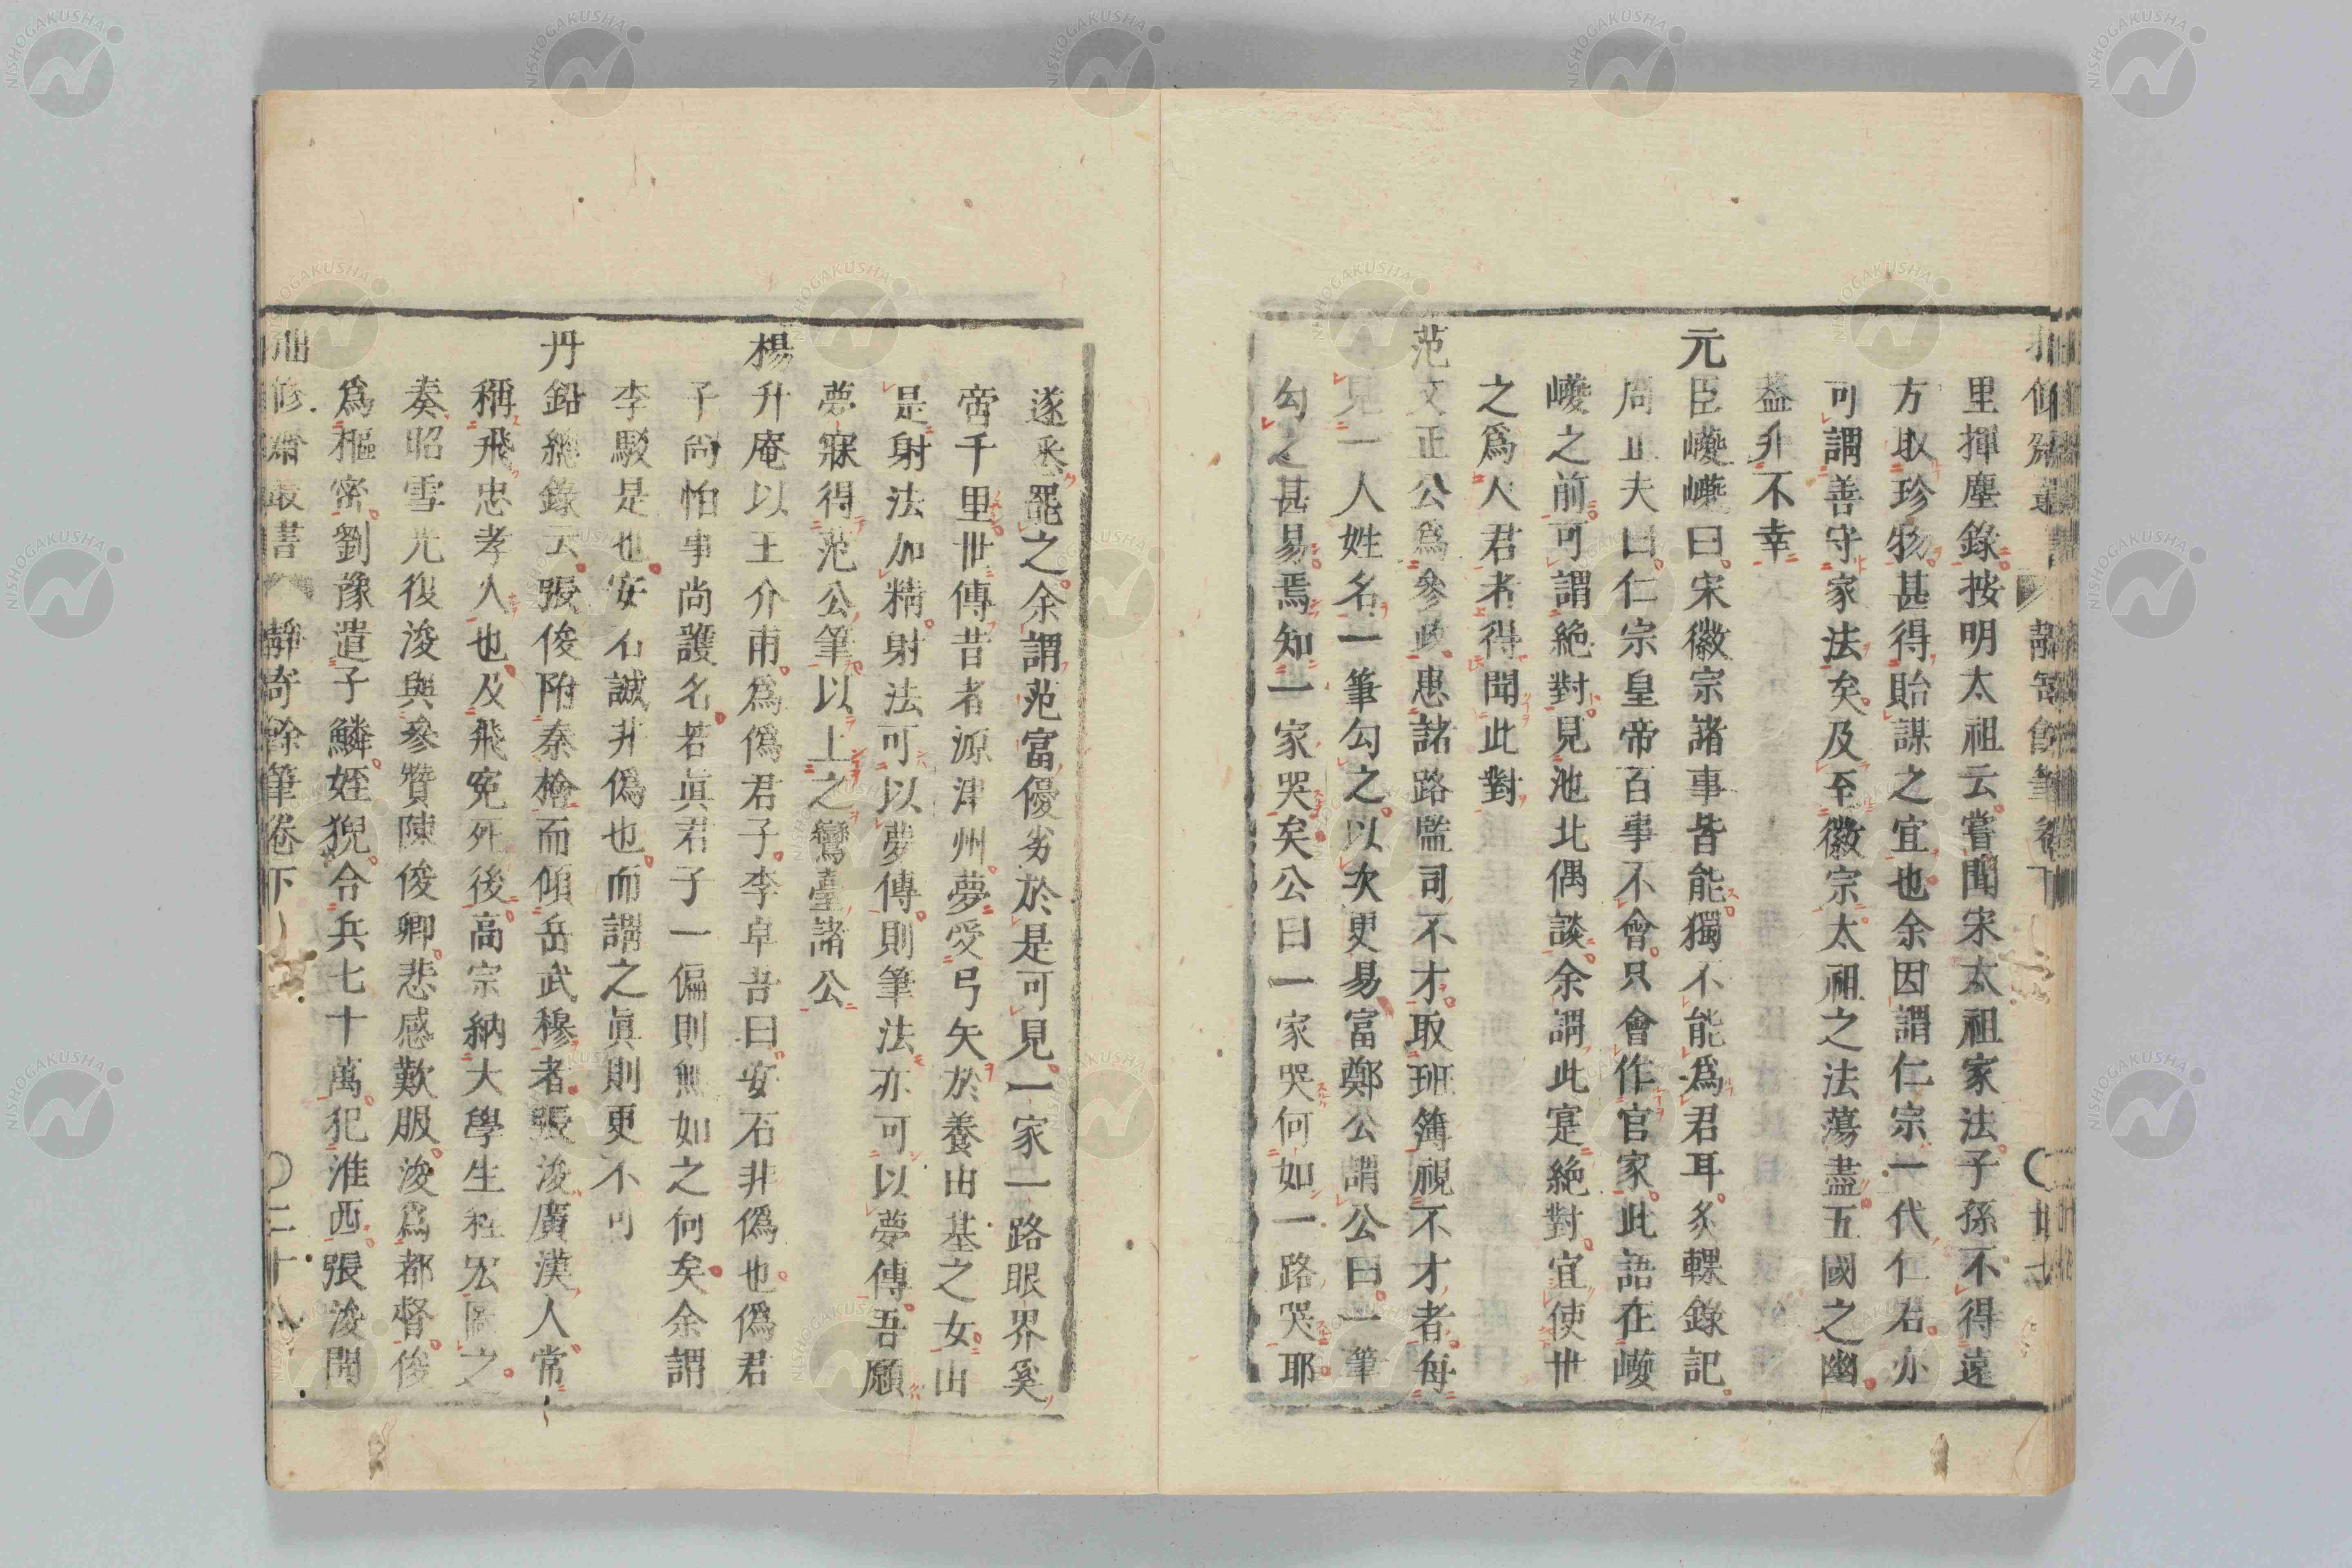 里揮塵錄按明太祖云嘗聞宋太祖家法子孫不得遠
方取珍物甚得貽謀之宜也余因謂仁宗一代仁君亦
可謂善守家法矣及至徽宗太祖之法蕩盡五國之幽
蓋非不幸
元臣巙巙曰宋徽宗諸事皆能獨不能爲君耳炙輠錄記
周正夫曰仁宗皇帝百事不會只會作官家此語在巙
巙之前可謂絶對見池北偶談余謂此寔絶對宜使世
之爲人君者得聞此對
范文正公爲參政患諸路監司不才取班簿視不才者每
見一人姓名一筆勾之以次更易富鄭公謂公曰一筆
勾之甚易焉知一家哭矣公曰一家哭何如一路哭耶
遂悉罷之余謂范富優劣於是可見一家一路眼界奚
啻千里世傳昔者源津州夢受弓矢於養由基之女由
是射法加精射法可以夢傳則筆法亦可以夢傳吾願
夢寐得范公筆以上之鸞臺諸公
楊升庵以王介甫爲僞君子李卓吾曰安石非僞也僞君
子尚怕事尚護名若眞君子一偏則無如之何矣余謂
李駁是也安石誠非僞也而謂之眞則更不可
丹鉛總錄云張俊附秦檜而傾岳武穆者張浚廣漢人常
稱飛忠孝人也及飛寃死後高宗納大學生程宏圖之
奏昭雪光復浚與參贊陳俊卿悲感歎服浚爲都督俊
爲樞密劉豫遣子鱗姪猊合兵七十萬犯淮西張浚聞
修 叢書 靜寄餘筆卷下 〇二十八